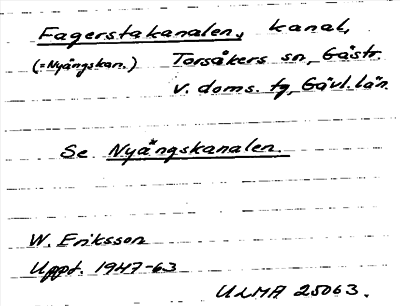 Fagerstakanalen, kanal,
(=Nyängskan.) Torsåkers sn, Gästr.
v. doms. tg, Gävl. län.
Se Nyängskanalen.
W. Eriksson
Uppt. 1947-63
ULMA 25063.